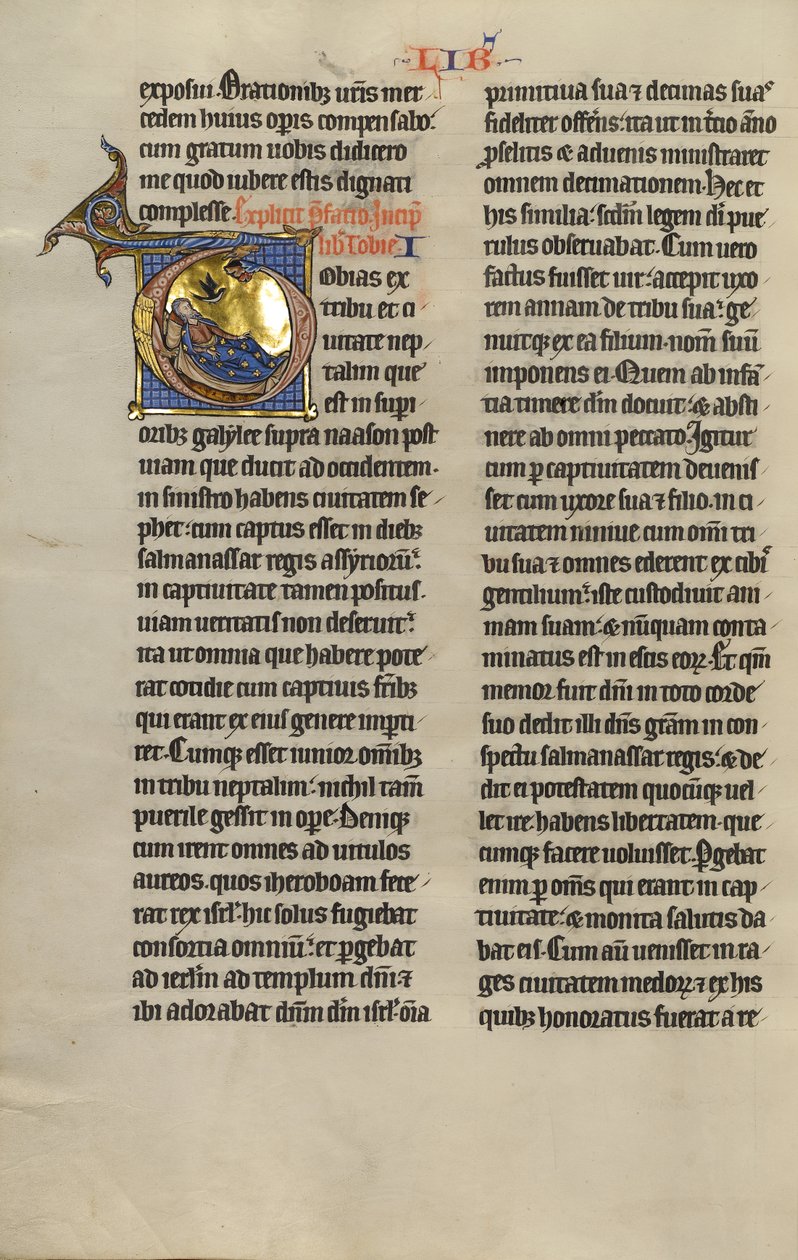 LIB
exposui. Orationib; ur̃is mer
cedem huius op̃is compensabo.
cum gratum uobis didicero
me quod iubere estis dignati
complesse. Explicit p̃fatio. Incip̃
lib̃ Tobie. I
obias ex
tribu et ci
uitate nep
talim que
est in sup̃i
orib; galylee supra naason post
uiam que ducit ad occidentem.
in sinistro habens ciuitatem se
phet: cum captus esset in dieb;
salmanassar regis assyrioru᷑.
in captiuitate tamen positus.
uiam ueritatis non deseruit.
ita ut omnia que habere pote
rat cotidie cum captiuis fr̃ib;
qui erant ex eius genere imp̱ti
ret. Cumq; esset iunior om̃ib;
in tribu neptalim: nichil tam̃
puerile gessit in op̱e. Deniq;
cum irent omnes ad uitulos
aureos. quos iheroboam fece
rat rex isrl̃. hic solus fugiebat
consortia omniu᷑. et p̱gebat
ad ierl̃m ad templum dñi. ⁊
ibi adorabat dñm d̃m isrl̃. oĩa
primitiua sua ⁊ decimas suas
fideliter offer̃s. ita ut in t̃cio ãno
p̱selitis & aduenis ministraret
omnem decimationem. Hec et
his similia. scd̃m legem d̃i pue
rulus obseruabat. Cum uero
factus fuisset uir. accepit uxo
rem annam de tribu sua. ge
nuitq; ex ea filium. nom̃ suũ
imponens ei. Quem ab infã
tia timere d̃m docuit. & absti
nere ab omni peccato. Igitur
cum p̱ captiuitatem deuenis
set cum uxore sua ⁊ filio. in ci
uitatem niniue cum om̃i tri
bu sua ⁊ omnes ederent ex cibi̾s
gentilium. iste custodiuit ani
mam suam. & nũquam conta
minatus est in escis eoꝝ. Et qm̃
memor fuit dñi in toto corde
suo dedit illi dñs gr̃am in con
spectu salmanassar regis. & de
dit ei potestatem quocũq; uel
let ire. habens libertatem. que
cumq; facere uoluisset. P̱gebat
enim p̱ om̃s qui erant in cap
tiuitate. & monita salutis da
bat eis. Cum aũ uenisset in ra
ges ciuitatem medoꝝ. ⁊ ex his
quib; honoratus fuerat a re